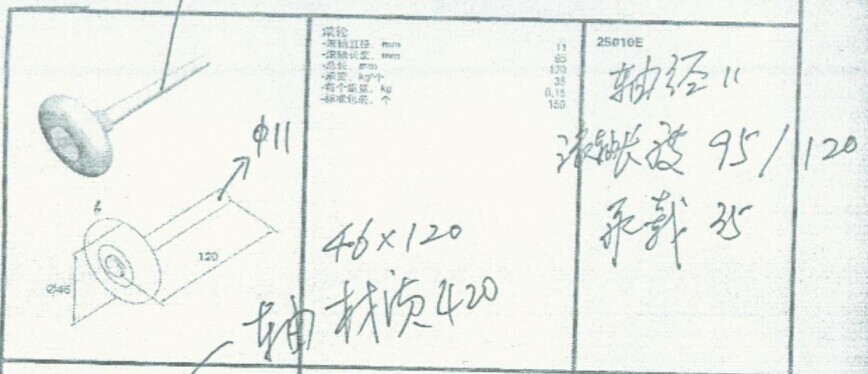 滚轮
-滚轴直径, mm 11
-滚轴长度, mm 95
-总长, mm 120
-承载, kg/个 35
-每个重量, kg 0,15
-标准包装, 个 150
25010E
轴径 11
滚轴长度 95/120
承载 35
Φ11
120
Ø46
46×120
轴材质420